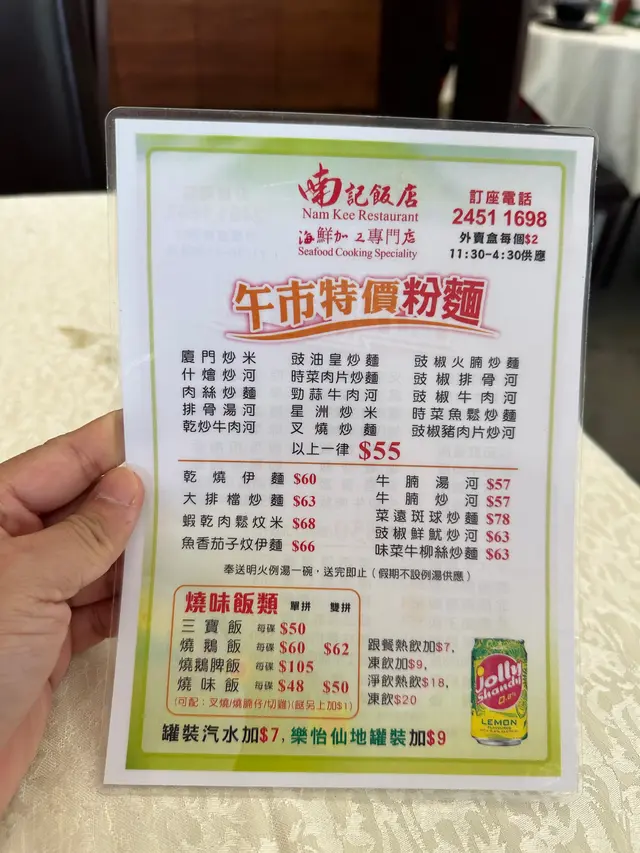 南記飯店
Nam Kee Restaurant
海鮮加工專門店
Seafood Cooking Speciality
訂座電話
2451 1698
外賣盒每個$2
11:30-4:30供應
午市特價粉麵
廈門炒米 豉油皇炒麵 豉椒火腩炒麵
什燴炒河 時菜肉片炒麵 豉椒排骨河
肉絲炒麵 勁蒜牛肉河 豉椒牛肉河
排骨湯河 星洲炒米 時菜魚鬆炒麵
乾炒牛肉河 叉燒炒麵 豉椒豬肉片炒河
以上一律 $55
乾燒伊麵 $60 牛腩湯河 $57
大排檔炒麵 $63 牛腩炒河 $57
蝦乾肉鬆炆米 $68 菜遠斑球炒麵 $78
魚香茄子炆伊麵 $66 豉椒鮮魷炒河 $63
味菜牛柳絲炒麵 $63
奉送明火例湯一碗，送完即止（假期不設例湯供應）
燒味飯類 單拼 雙拼
三寶飯 每碟 $50
燒鵝飯 每碟 $60 $62
燒鵝脾飯 每碟 $105
燒味飯 每碟 $48 $50
(可配：叉燒/燒腩仔/切雞)(髀另上加$1)
跟餐熱飲加$7,
凍飲加$9,
淨飲熱飲$18,
凍飲$20
Jolly
Shandy
0.8%
LEMON
罐裝汽水加$7, 樂怡仙地罐裝加$9